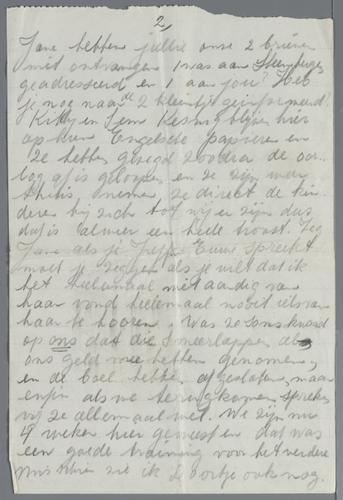 2,
Jane hebben jullie onze 2 brieven
niet ontvangen 1 was aan
geadresseerd en 1 aan jou? Heb
je nog naar de 2 kleintjes geïnformeerd?
Kitty en Sem blijven hier
op hun Engelsche papieren en
ze hebben gezegd zoodra de oor-
log afis geloopen en ze zijn weer
thuis nemen ze direct de kin-
deren bij zich tot wij er zijn dus
datis alweer een heele troost. Zeg
Jane als je Juffr. spreekt
moet je zeggen als je wilt dat ik
het heelemaal niet aardig van
haar vond heelemaal nooit iets van
haar te hooren. Was ze soms kwaad
op ons dat die smeerlappen als
ons geld mee hebben genomen,
en de boel hebben afgesloten, maar
enfin als we terugkomen spreken
wij ze allemaal wel. We zijn nu
4 weken hier geweest en dat was
een goede training voor het verdere
misschien zie ik ook nog.